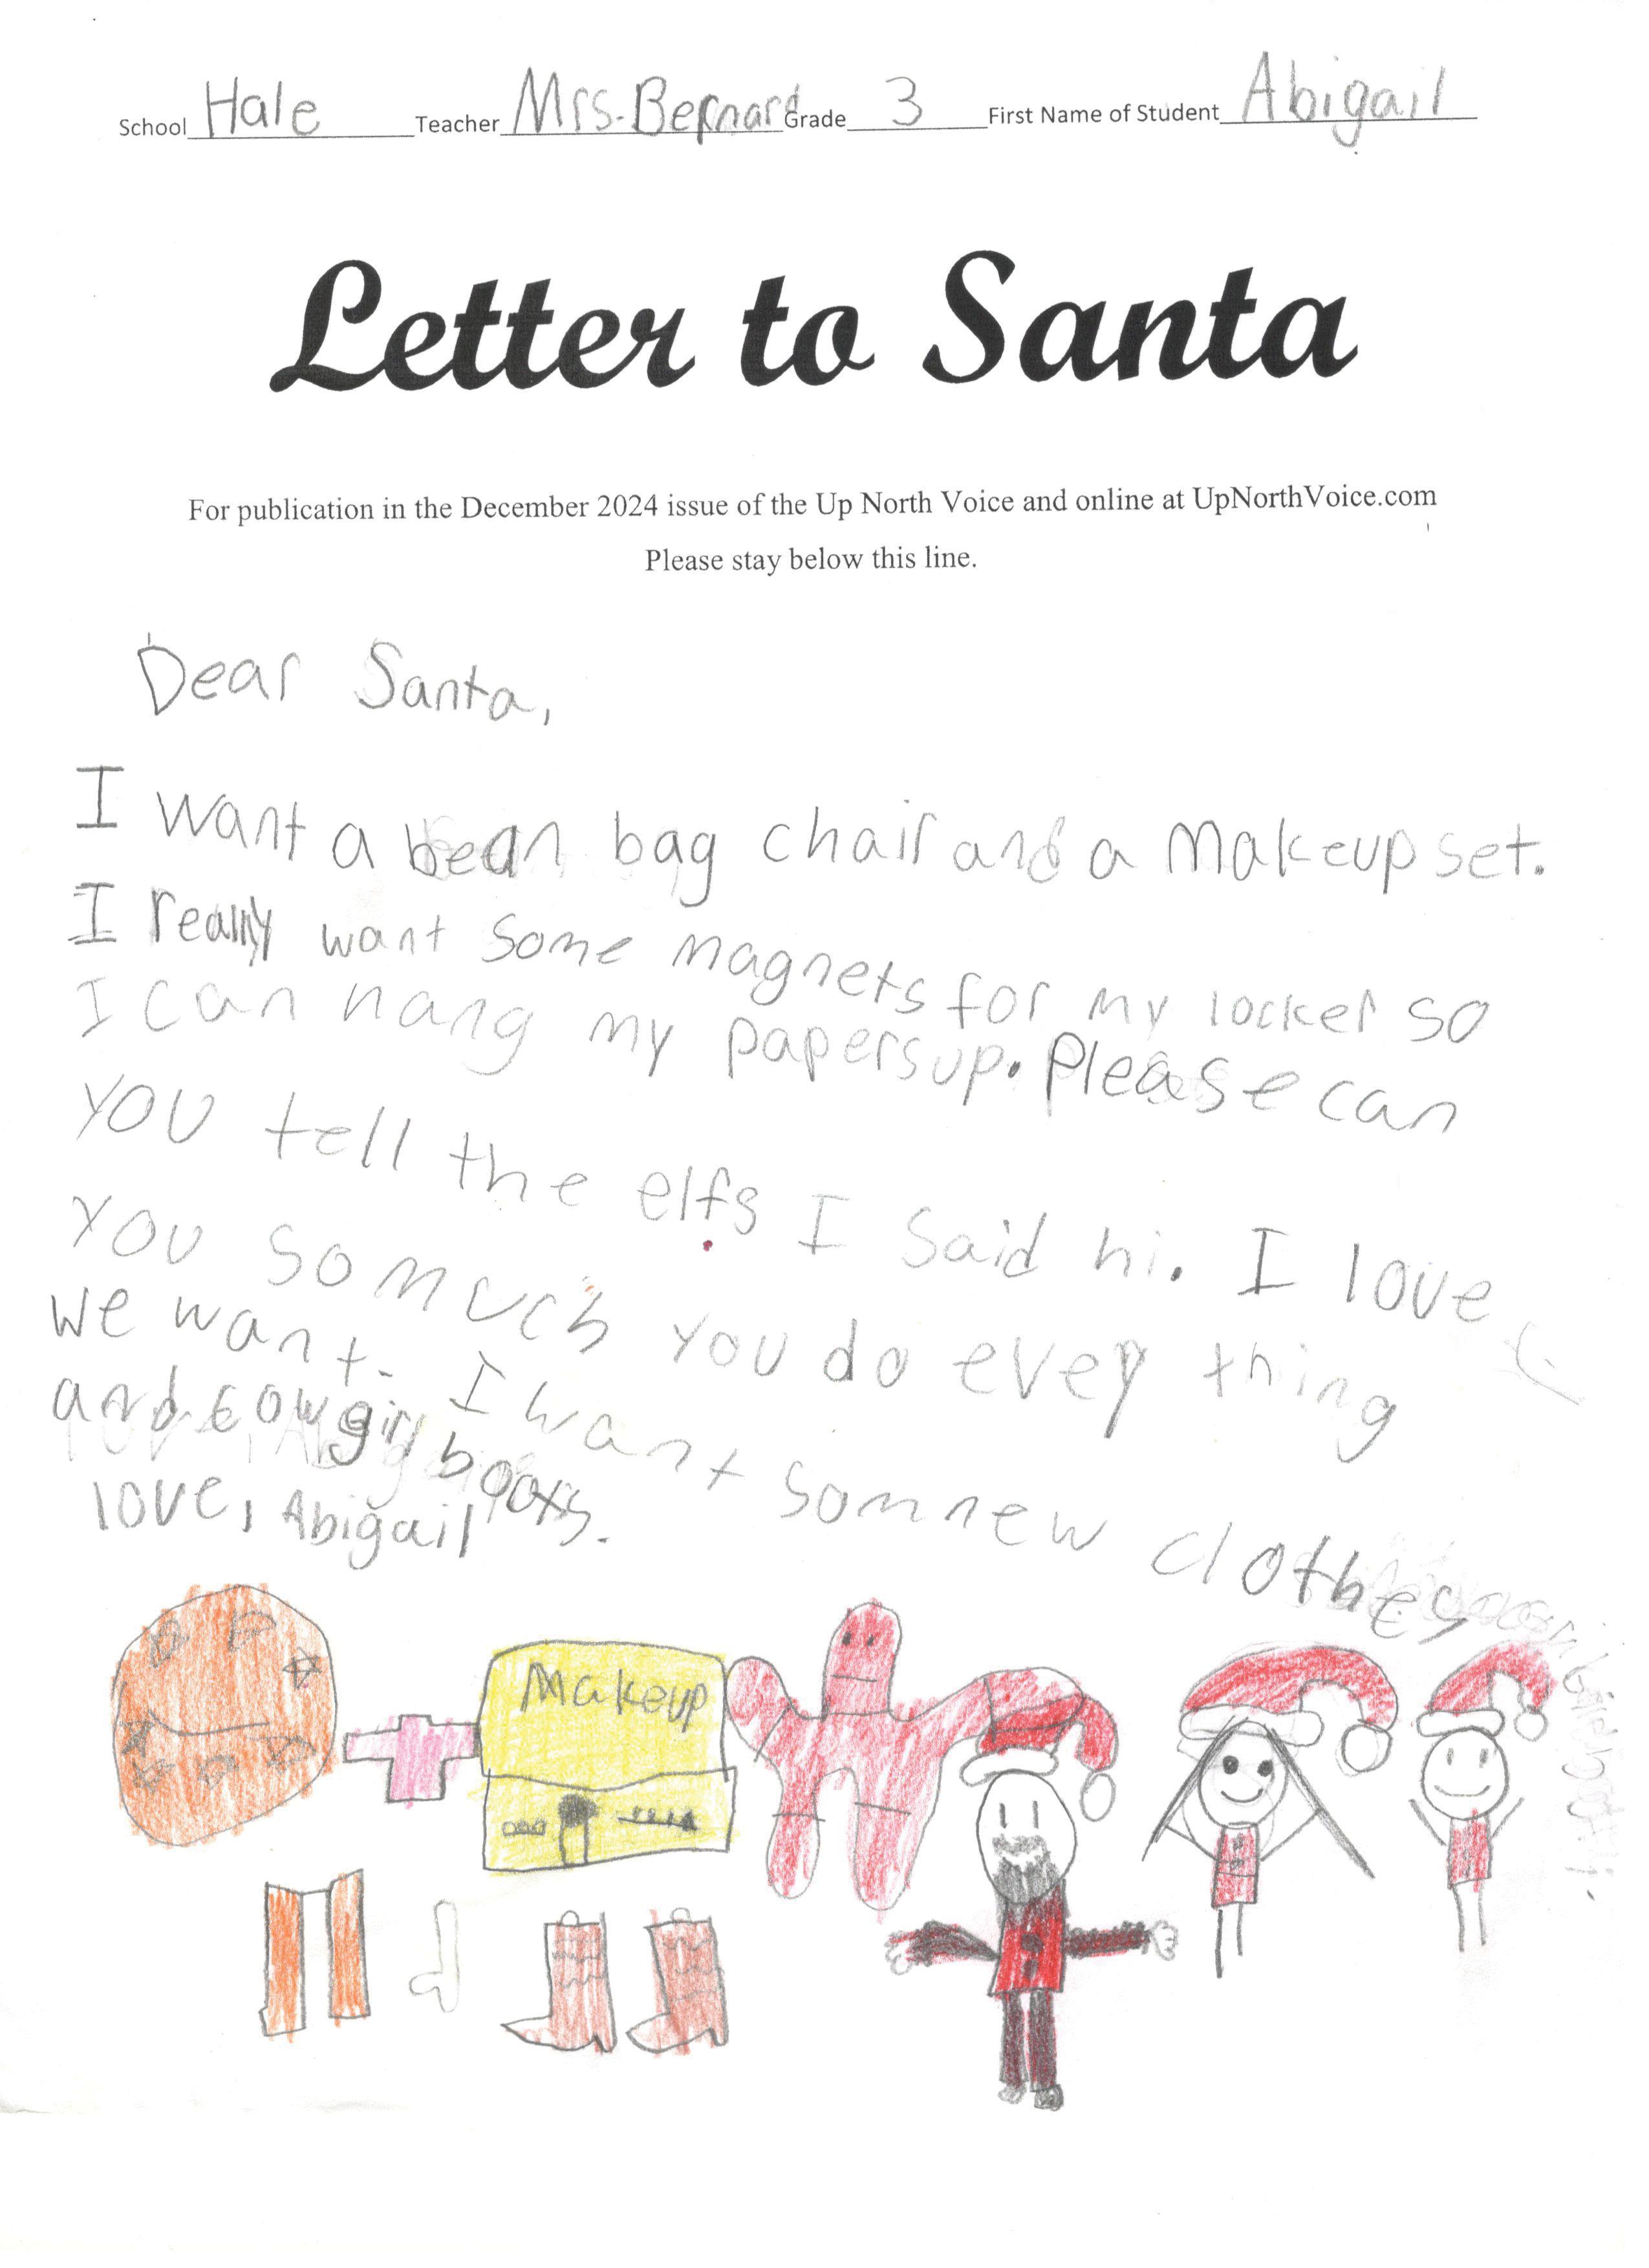 School Hale Teacher Mrs. Bernard Grade 3 First Name of Student Abigail
Letter to Santa
For publication in the December 2024 issue of the Up North Voice and online at UpNorthVoice.com
Please stay below this line.
Dear Santa,
I want a bean bag chair and a makeup set.
I really want some magnets for my locker so
I can hang my papers up. Please can
you tell the elfs I said hi. I love
you so much you do evey thing
we want. I want som new clothes
and cowgirl boots.
love, Abigail
Makeup